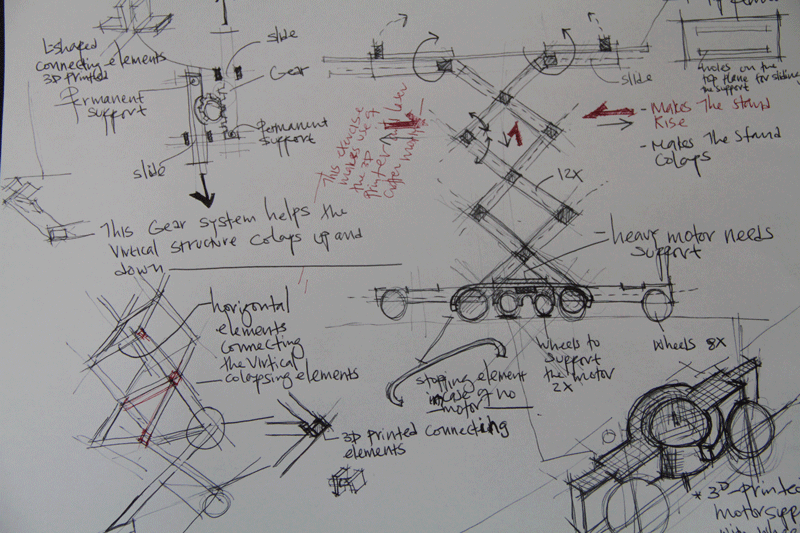 L-shaped
connecting elements
3D printed
Permanent
support
slide
Gear
Permanent
support
slide
This Gear system helps the
Virtical structure Colaps up and
down
This exercise
makes use of
the 3D
printer
laser
slide
holes on the
top plane for sliding
the support
- Makes The stand
Rise
- Makes The Stand
Colaps
12X
heavy motor needs
support
horizontal
elements
connecting
the virtical
colapsing elements
stopping element
in case of no
motor
wheels to
support
the motor
2X
wheels 8X
3D printed connecting
elements
* 3D-printed
motor supp
with whee